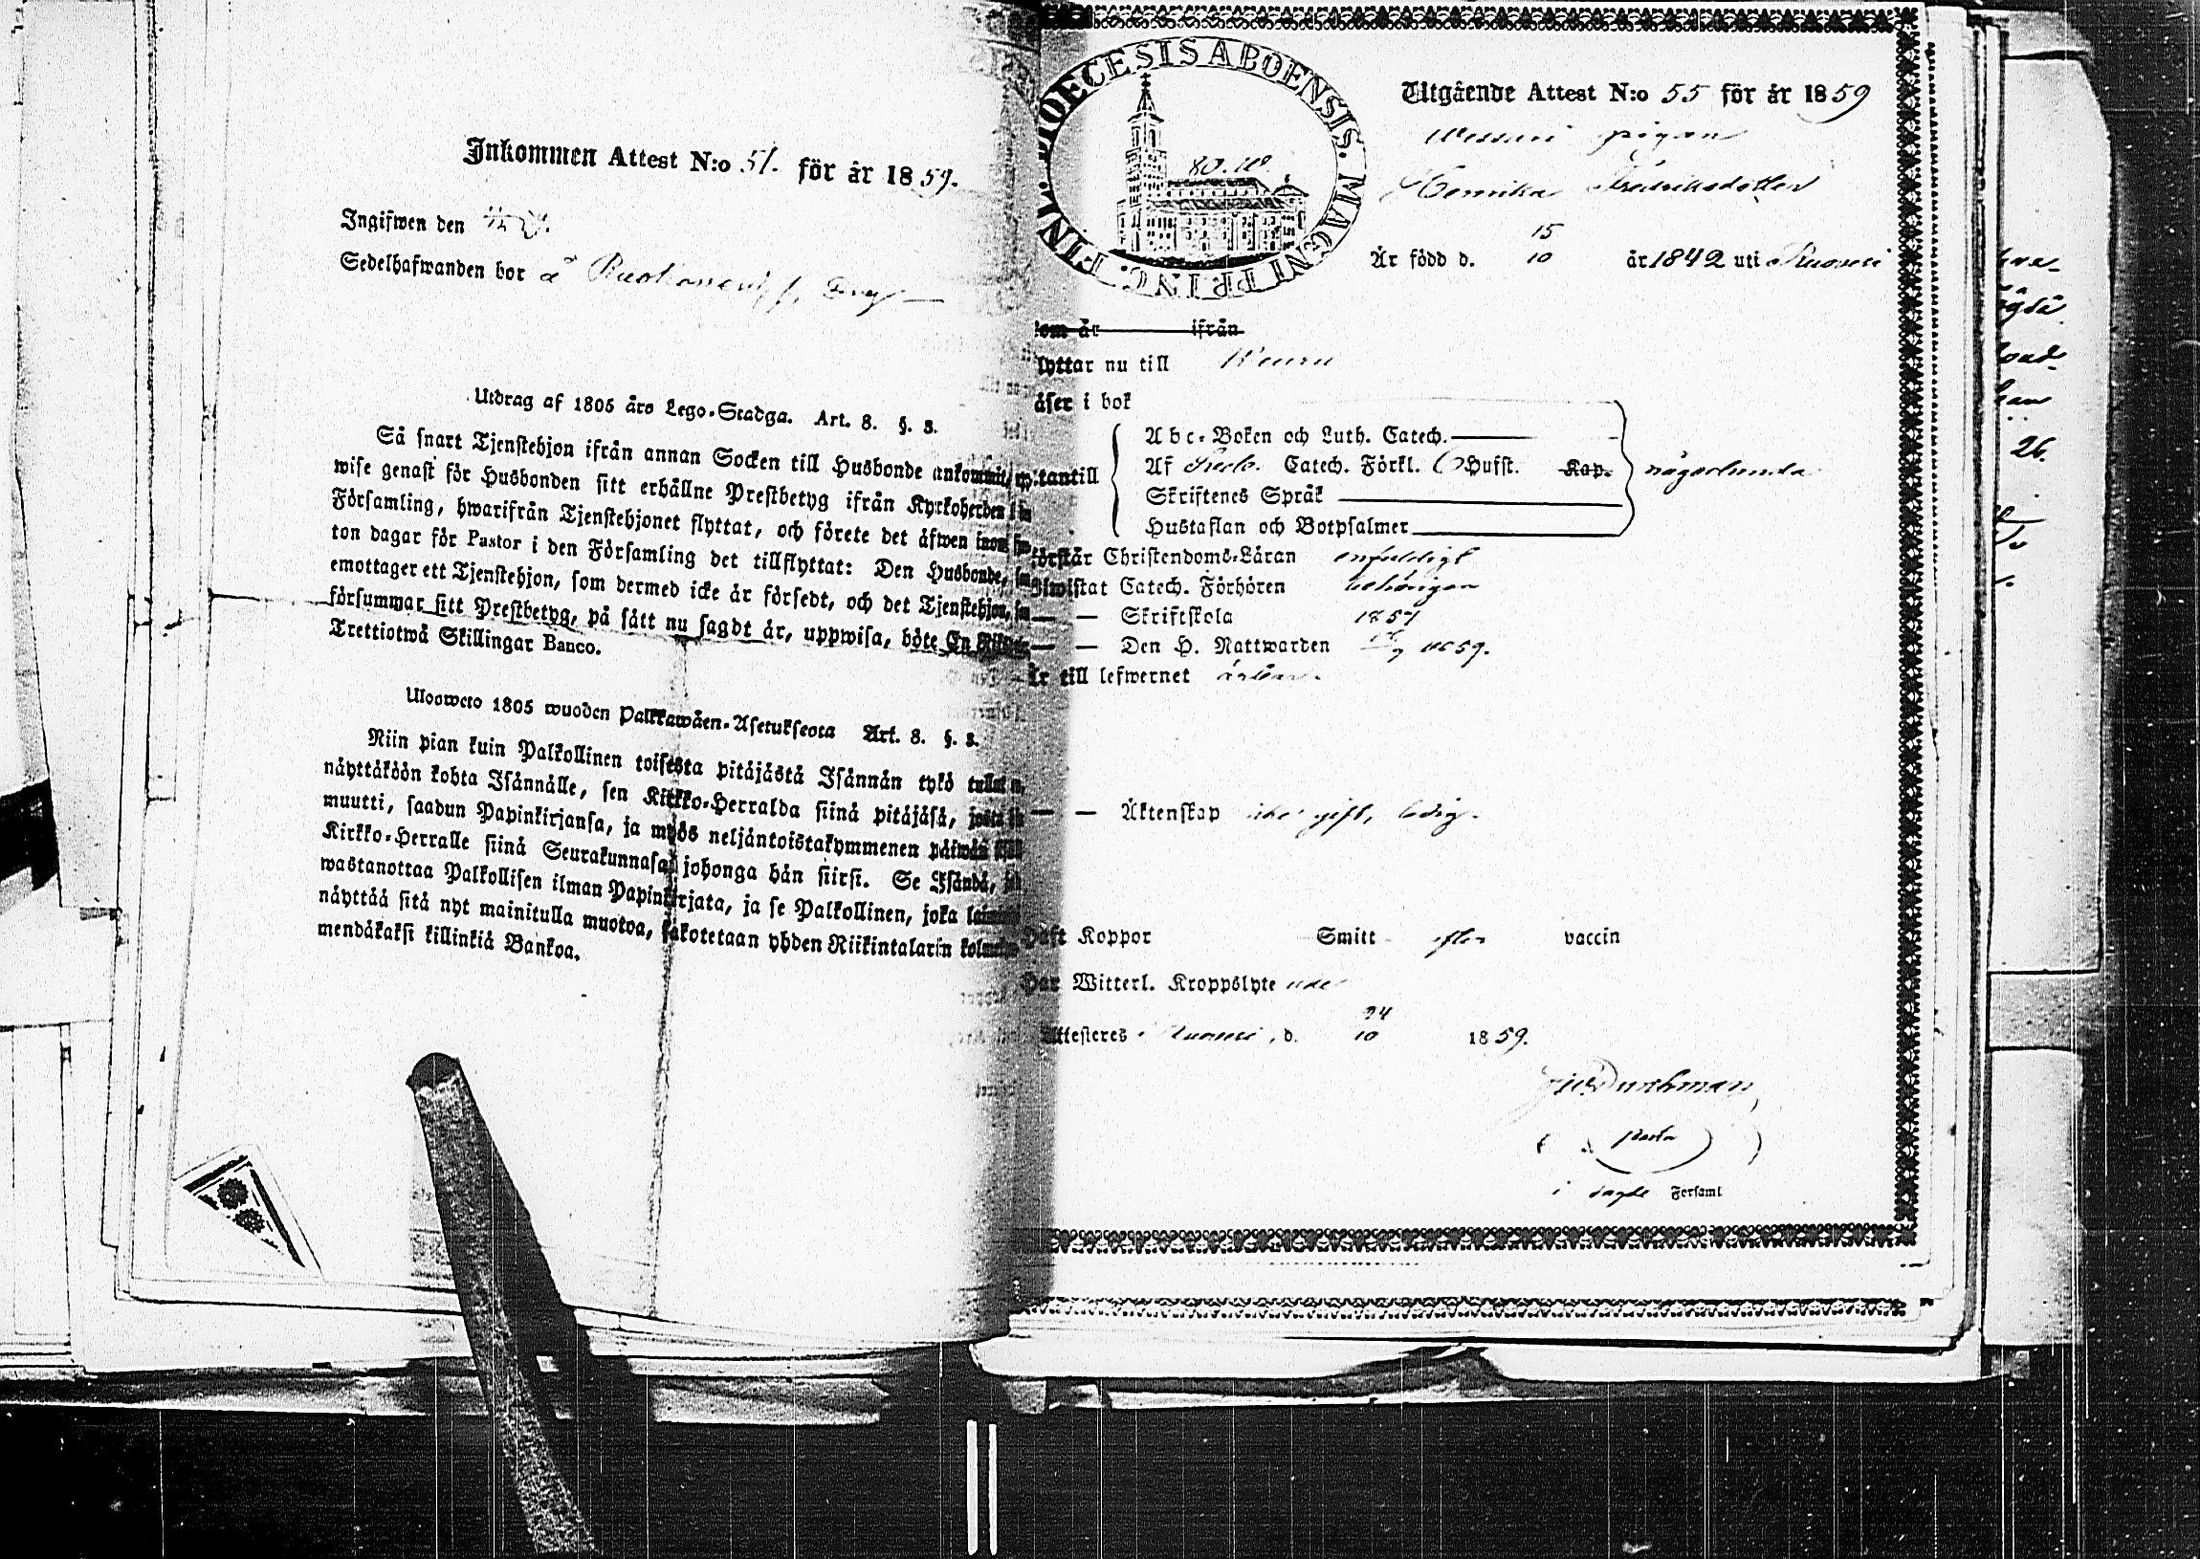 Inkommen Attest N:o 51. för år 1859.
Ingifwen den
Sedelhafwanden bor å
Utdrag af 1805 års Lego-Stadga. Art. 8. §. 3.
Så snart Tjenstehjon ifrån annan Socken till Husbonde ankommit,
wise genast för Husbonden sitt erhållne Prestbetyg ifrån Kyrkoherden i
Församling, hwarifrån Tjenstehjonet flyttat, och förete det äfwen inom
ton dagar för Pastor i den Församling det tillflyttat: Den Husbonde,
emottager ett Tjenstehjon, som dermed icke är försedt, och det Tjenstehjon,
försummar sitt Prestbetyg, på sätt nu sagdt är, uppwisa, böte En
Trettiotwå Skillingar Banco.
Ulosweto 1805 wuoden Palkkawäen-Asetuksesta Art. 8. §. 3.
Niin pian kuin Palkollinen toisesta pitäjästä Isännän tykö
näyttäköön kohta Isännälle, sen Kirkko-Herralda siinä pitäjäsä,
muutti, saadun Papinkirjansa, ja myös neljäntoistakymmenen päiwän
Kirkko-Herralle siinä Seurakunnasa johonga hän siirsi. Se Isändä,
wastanottaa Palkollisen ilman Papinkirjata, ja se Palkollinen, joka
näyttää sitä nyt mainitulla muotoa, sakotetaan yhden Riikintalarin
mendäkaksi killinkiä Bankoa.
DIOECESIS ABOENSIS. MAGNI PRINC. FINL.
80. 10
Utgående Attest N:o 55 för år 1859
pigan
Henrika Fredriksdotter
Är född d. 15/10 år 1842 uti
som år ifrån
lyttar nu till Keuru
äser i bok
tantill
Abc-Boken och Luth. Catech.
Af Catech. Förkl. Hufst. Kap. någorlunda
Skriftenes Språk
Hustaflan och Botpsalmer
örstår Christendoms-Läran enfaldigt
wistat Catech. Förhören behörigen
— — Skriftskola 1857
— — Den H. Nattwarden 1859.
Är till lefwernet ärbar.
— — Äktenskap icke gift, ledig.
Haft Koppor Smitt efter vaccin
Har Witterl. Kroppslyte
Attesteres i , d. 24/10 1859.
i sagde Forsaml
26.